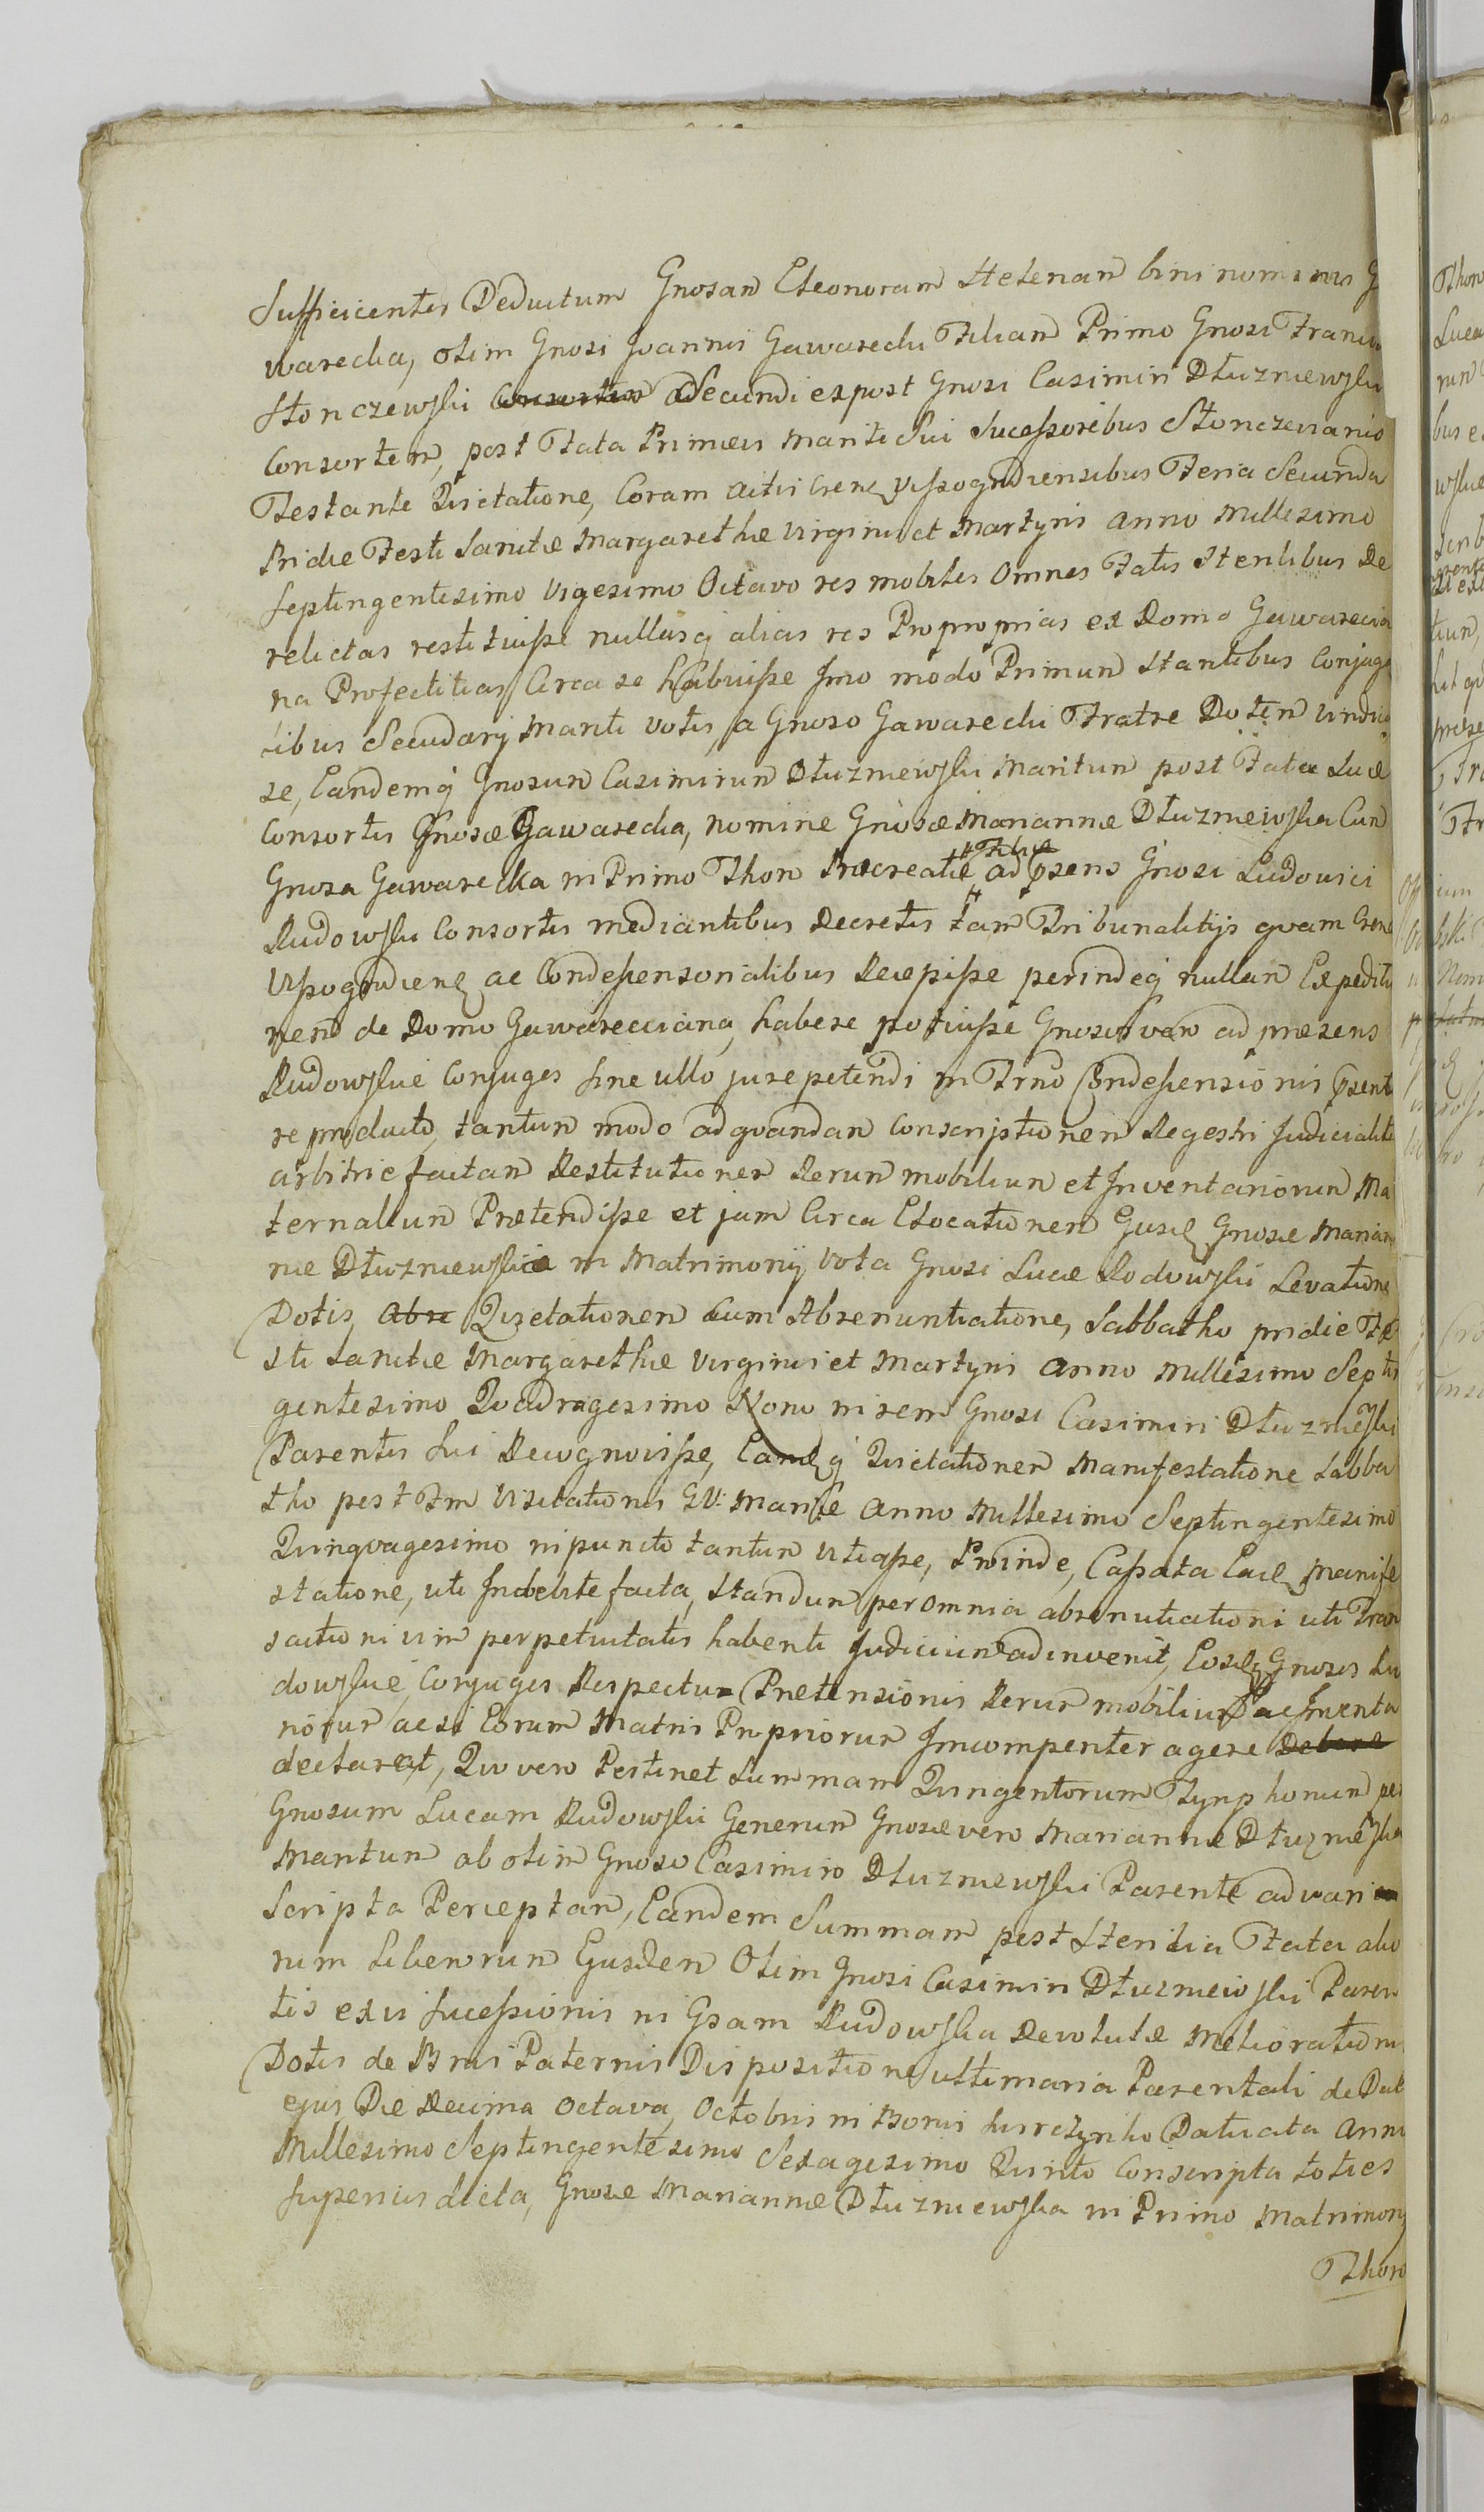 Sufficienter Deductum Gnosam Eleonoram Helenam bini nominis G
warecka, olim Gnosi Joannis Gawarecki Filiam Primo Gnosi Franci
Słonczewski Consortem Secundi expost Gnosi Casimiri Dłuzniewski
Consortem, post Fata Primevi Mariti Sui Sucessoribus Słonczevianis
Testante Qvietatione, Coram Actis Cren Vyszogrdiensibus Feria Secunda
Pridie Festi Sanctæ Margarethæ Virginis et Martyris Anno Millesimo
Septingentesimo Vigesimo Octavo res mobiles Omnes Fatis Sterilibus De
relictas restituisse nullasq alias res Proproprias ex Domo Gawarecia
na Profectitias Circa se habuisse Imo modo Primum Stantibus Conjuga
libus Secudarij Mariti votis, a Gnoso Gawarecki Fratre Dotem vindica
se, Eandemq Gnosum Casimirum Dłuzniewski Maritum post Fata Suæ
Consortis Gnosæ Gawarecka, nomine Gnosæ Mariannæ Dłuzniewska Cum
Gnosa Gawarecka in Primo Thoro Procreatæ Filiæ ad psens Gnosi Ludovici
Rudowski Consortis mediantibus Decretis tam Tribunalitijs qvam Cren
Vyszogrdien ac Condescensorialibus Recepisse perindeq nullam Expeditio
nem de Domo Gawarecciana, habere potuisse Gnosos vero ad præsens
Rudowskie Conjuges sine ullo jure petendi in Trno Condescensionis psent
re producto tantum modo ad qvandam Conscriptionem Regestri Judicialit
arbitrie factam Restitutionem Rerum mobilium et Inventariorum Ma
ternalium Prætendisse et jam Circa Elocationem Ejusd Gnosæ Marian
næ Dłuzniewskie in Matrimonij Vota Gnosi Lucæ Rodowski Levatione
Dotis, Abre Qvietationem Cum Abrenuntiatione, Sabbatho pridie Fe
sti Sanctæ Margarethæ Virginis et Martyris Anno Millesimo Septin
gentesimo Qvadragesimo Nono in rem Gnosi Casimiri Dłuzniewski
Parentis Sui Recognovisse, Eandq Qvietationem Manifestatione Sabba
tho post Fm Visitationis BV: Mariæ Anno Millesimo Septingentesimo
Qvinqvagesimo in puncto tantum Attigisse, Proinde, Cassata Ead Manife
statione, uti Indebite facta, Standum per Omnia abrenutiationi uti Tran
sactioni vim perpetuitatis habenti Judicium adinvenit, Eosd Gnosos Ru
dowskie, Conjuges Respectu Prætensionis Rerum mobilium ac Inventa
riorum acsi Eorum Matris Propriorum Imcompenter agere Debere
declarat, Qvo vero Pertinet Summam Qvingentorum Tynphonum per
Gnosum Lucam Rudowski Generum Gnosæ vero Mariannæ Dłuzniewska
Maritum ab olim Gnoso Casimiro Dłuzniewski Parente ad varia
Scripta Perceptam, Eandem Summam post Sterilia Fata alio
rum Liberorum Ejusdem Olim Gnosi Casimiri Dłuzniewski Paren
tis ex vi Sucessionis in Gsam Rudowska Devolutæ Meliorationi
Dotis de Bnis Paternis Dispositione ultimaria Parentali de Dat
ejus Die Decima Octava Octobris in Bonis Datiata Anni
Millesimo Septingentesimo Sexagesimo Qvinto Conscripta toties
Superius dicta, Gnosæ Mariannæ Dłuzniewska in Primo Matrimonij
Thoro